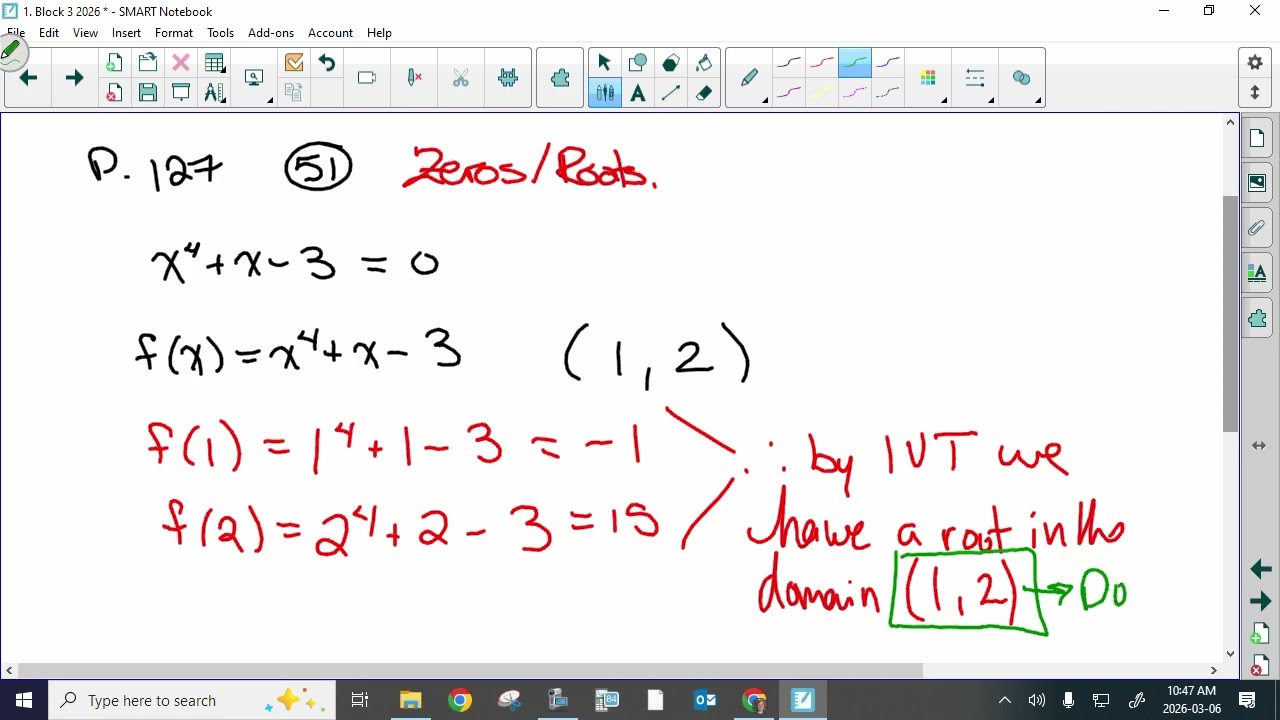 1. Block 3 2026 * - SMART Notebook
File Edit View Insert Format Tools Add-ons Account Help
P. 127 51 Zeros/Roots.
x⁴+x-3 = 0
f(x)=x⁴+x-3 (1, 2)
f(1) = 1⁴+1-3 = -1
f(2) = 2⁴+2-3 = 15
∴ by IVT we
have a root in the
domain (1, 2) → Do
Type here to search
84
10:47 AM
2026-03-06